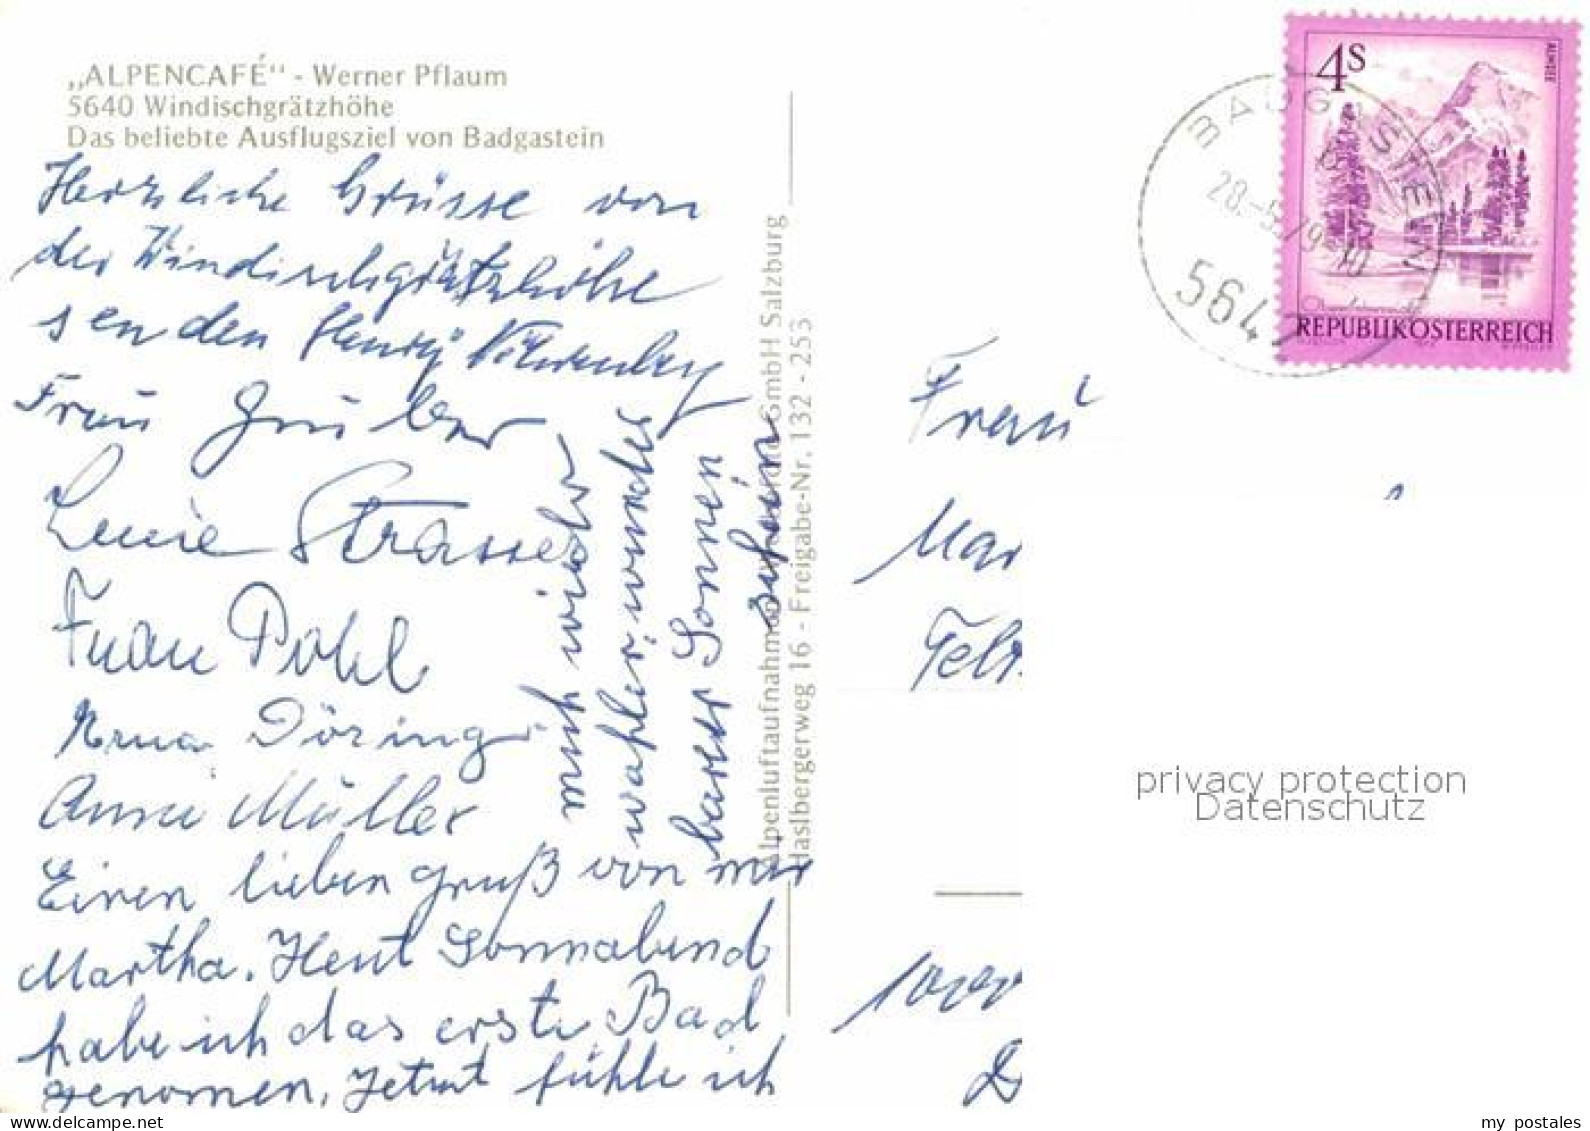 „ALPENCAFÉ" - Werner Pflaum
5640 Windischgrätzhöhe
Das beliebte Ausflugsziel von Badgastein
Herzliche Grüsse von
der Windischgrätzhöhe
senden
Frau Gruber
Strasser
Frau Pohl
Döring
Anna Müller
Einen lieben Gruß von mir
Martha. Heut Sonnabend
habe ich das erste Bad
genomen. Jetzt fühle ich
mich wieder
wohler. wunder
barer Sonnen
schein
Alpenluftaufnahmen GmbH Salzburg
Haslbergerweg 16 - Freigabe-Nr. 132 - 253
4S
ALMSEE
REPUBLIK ÖSTERREICH
BADGASTEIN
28.-5.79
564
Frau
Mar
1000
privacy protection
Datenschutz
my postales